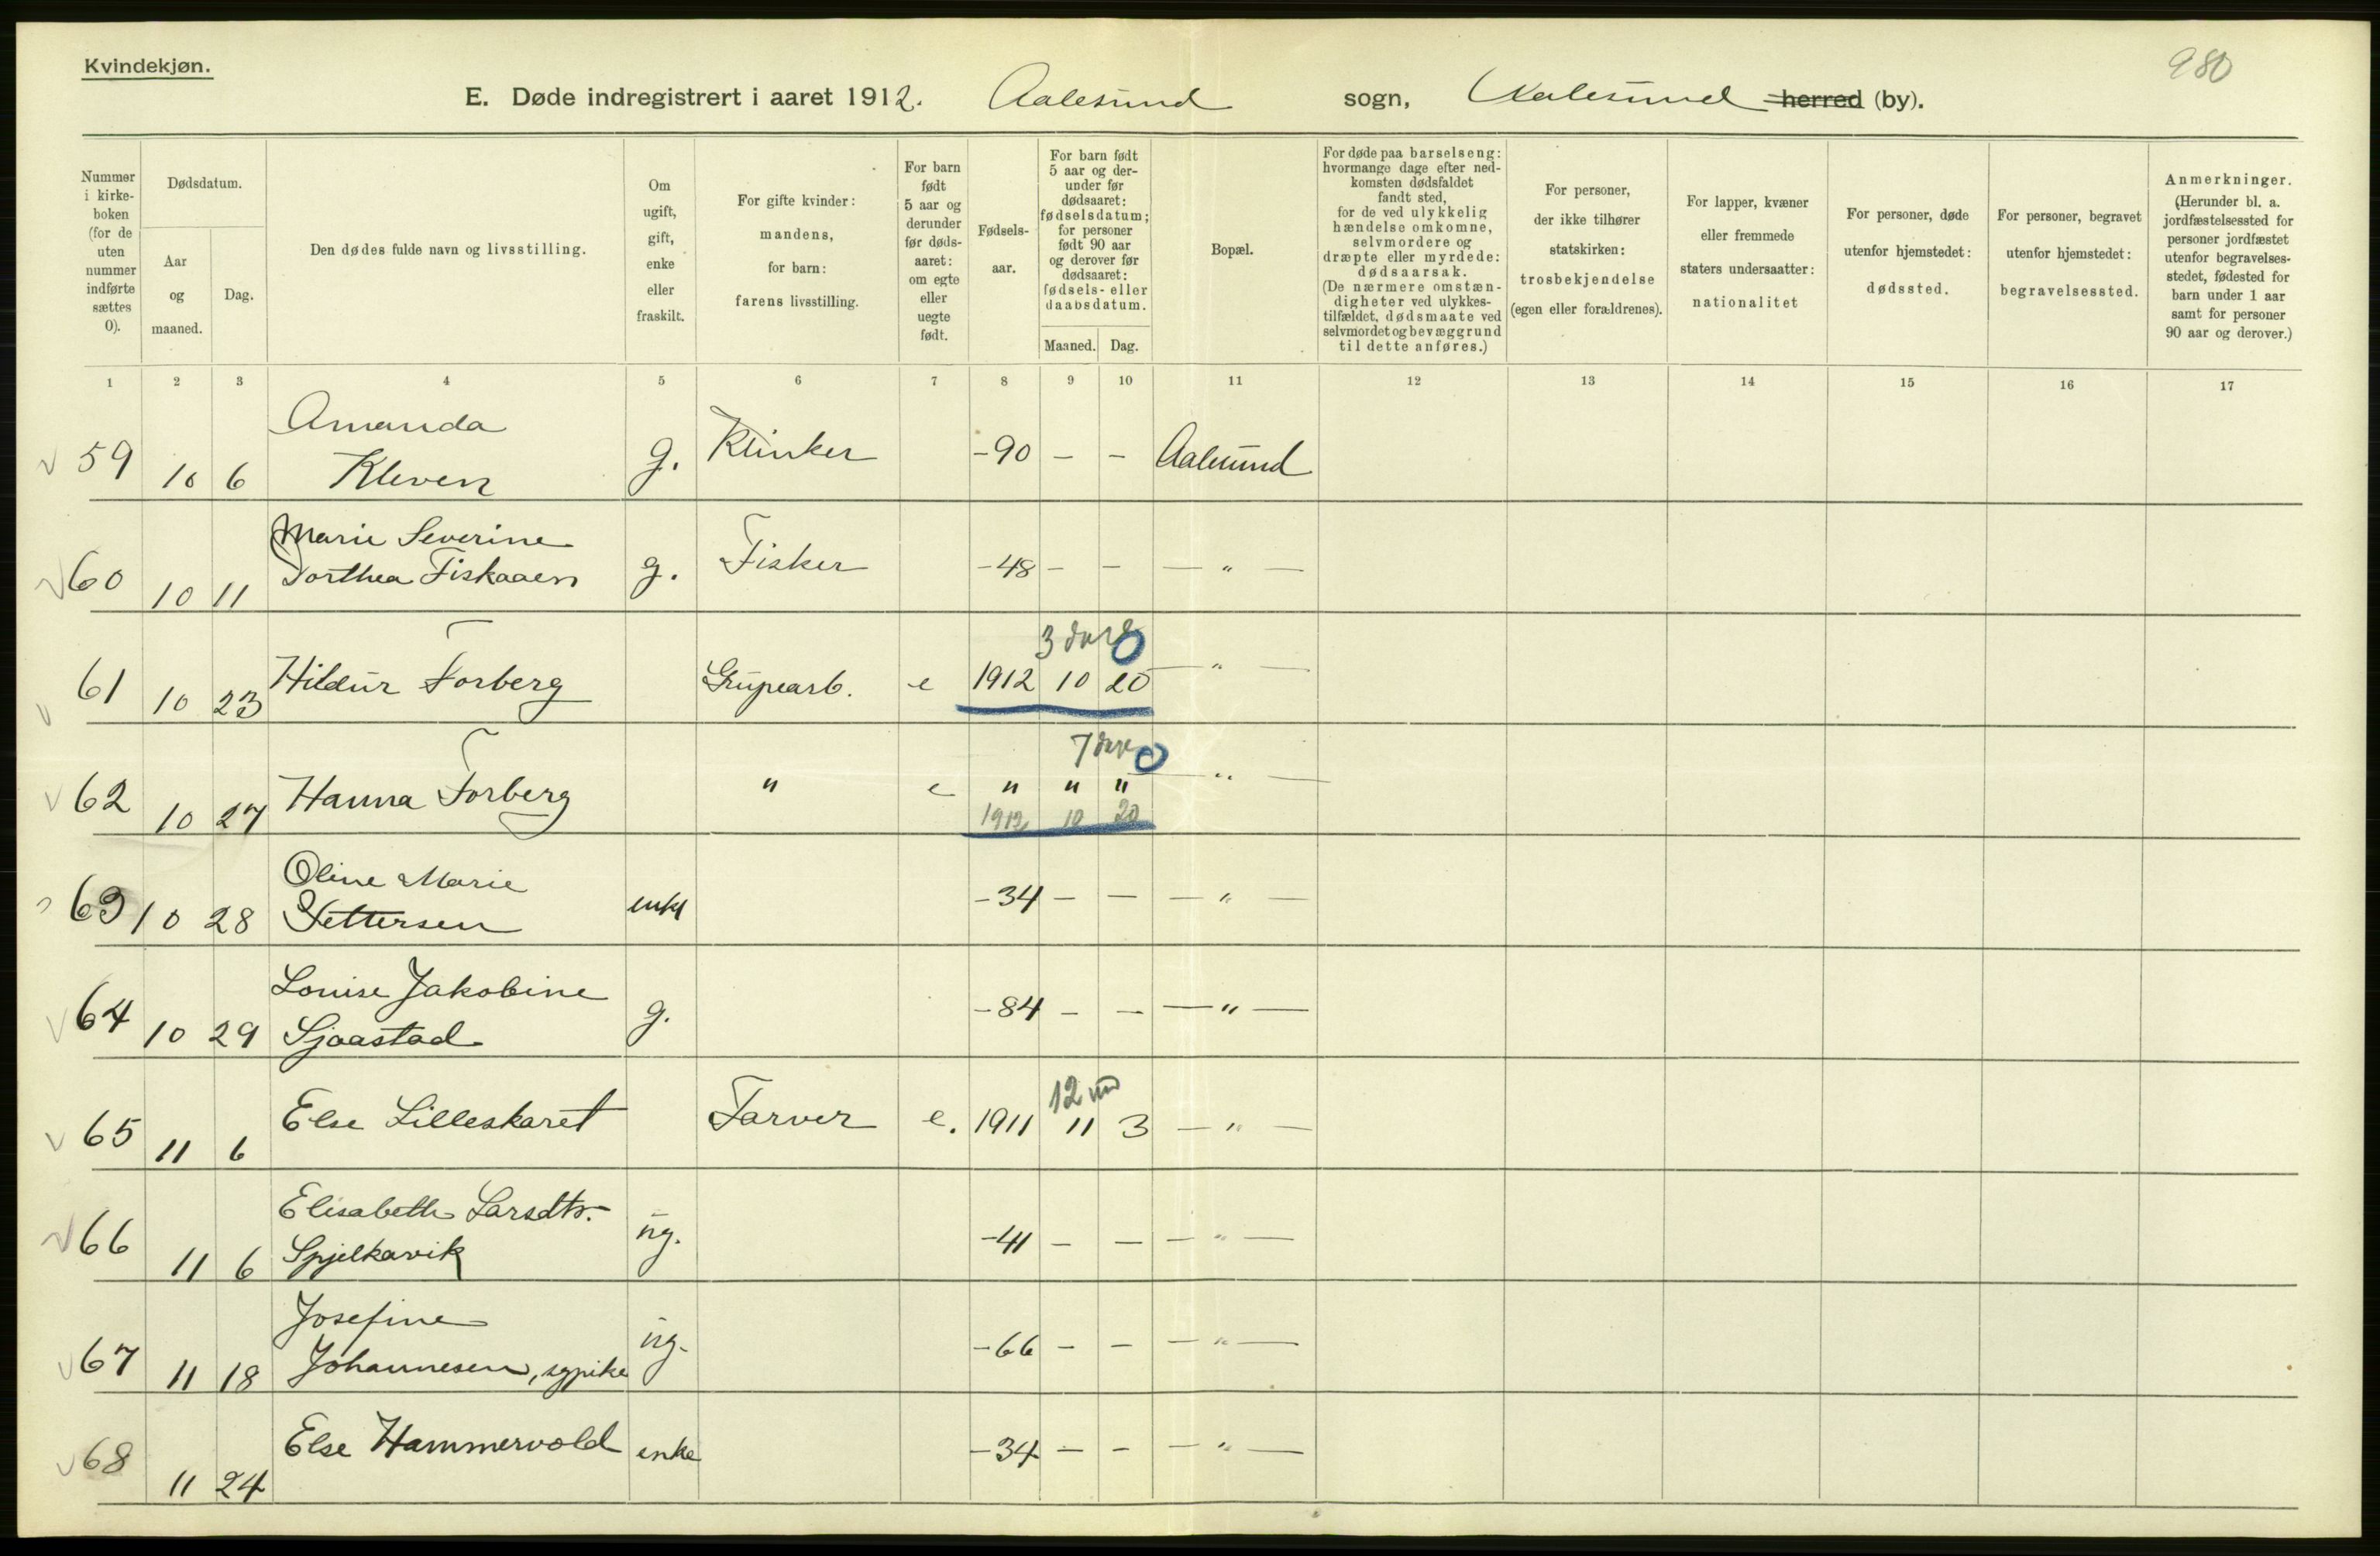 Kvindekjøn.
980
E. Døde indregistrert i aaret 1912. Aalesund sogn, Aalesund herred (by).
Nummer i kirke-boken (for de uten nummer indførte sættes 0).
Dødsdatum.
Aar og maaned.
Dag.
Den dødes fulde navn og livsstilling.
Om ugift, gift, enke eller fraskilt.
For gifte kvinder: mandens, for barn: farens livsstilling.
For barn født 5 aar og derunder før døds-aaret: om egte eller uegte født.
Fødsels-aar.
For barn født 5 aar og der-under før dødsaaret: fødselsdatum; for personer født 90 aar og derover før dødsaaret: fødsels- eller daabsdatum.
Maaned. Dag.
Bopæl.
For døde paa barselseng: hvormange dage efter ned-komsten dødsfaldet fandt sted, for de ved ulykkelig hændelse omkomne, selvmordere og dræpte eller myrdede: dødsaarsak. (De nærmere omstæn-digheter ved ulykkes-tilfældet, dødsmaate ved selvmordet og bevæggrund til dette anføres.)
For personer, der ikke tilhører statskirken: trosbekjendelse (egen eller forældrenes).
For lapper, kvæner eller fremmede staters undersaatter: nationalitet
For personer, døde utenfor hjemstedet: dødssted.
For personer, begravet utenfor hjemstedet: begravelsessted.
Anmerkninger. (Herunder bl. a. jordfæstelsessted for personer jordfæstet utenfor begravelses-stedet, fødested for barn under 1 aar samt for personer 90 aar og derover.)
1 2 3 4 5 6 7 8 9 10 11 12 13 14 15 16 17
Amanda
59 10 6 Kleven g. Klinker -90 - - Aalesund
Marie Severine
60 10 11 Torthea Fiskaaen g. Fisker -48 - - — " —
3 dage 0
61 10 23 Hildur Forberg Grupearb. e 1912 10 20 — " —
7 dage 0
62 10 27 Hanna Forberg " e " " " — " —
1912 10 20
Oline Marie
63 10 28 Pettersen enke -34 - - — " —
Louise Jakobine
64 10 29 Sjaastad g. -84 - - — " —
12 md
65 11 6 Else Lilleskaret Farver e. 1911 11 3 — " —
Elisabeth Larsdtr.
66 11 6 Spjelkavik ug. -41 - - — " —
Josefine
67 11 18 Johannesen, sypike ug. -66 - - — " —
68 11 24 Else Hammervold enke -34 - - — " —